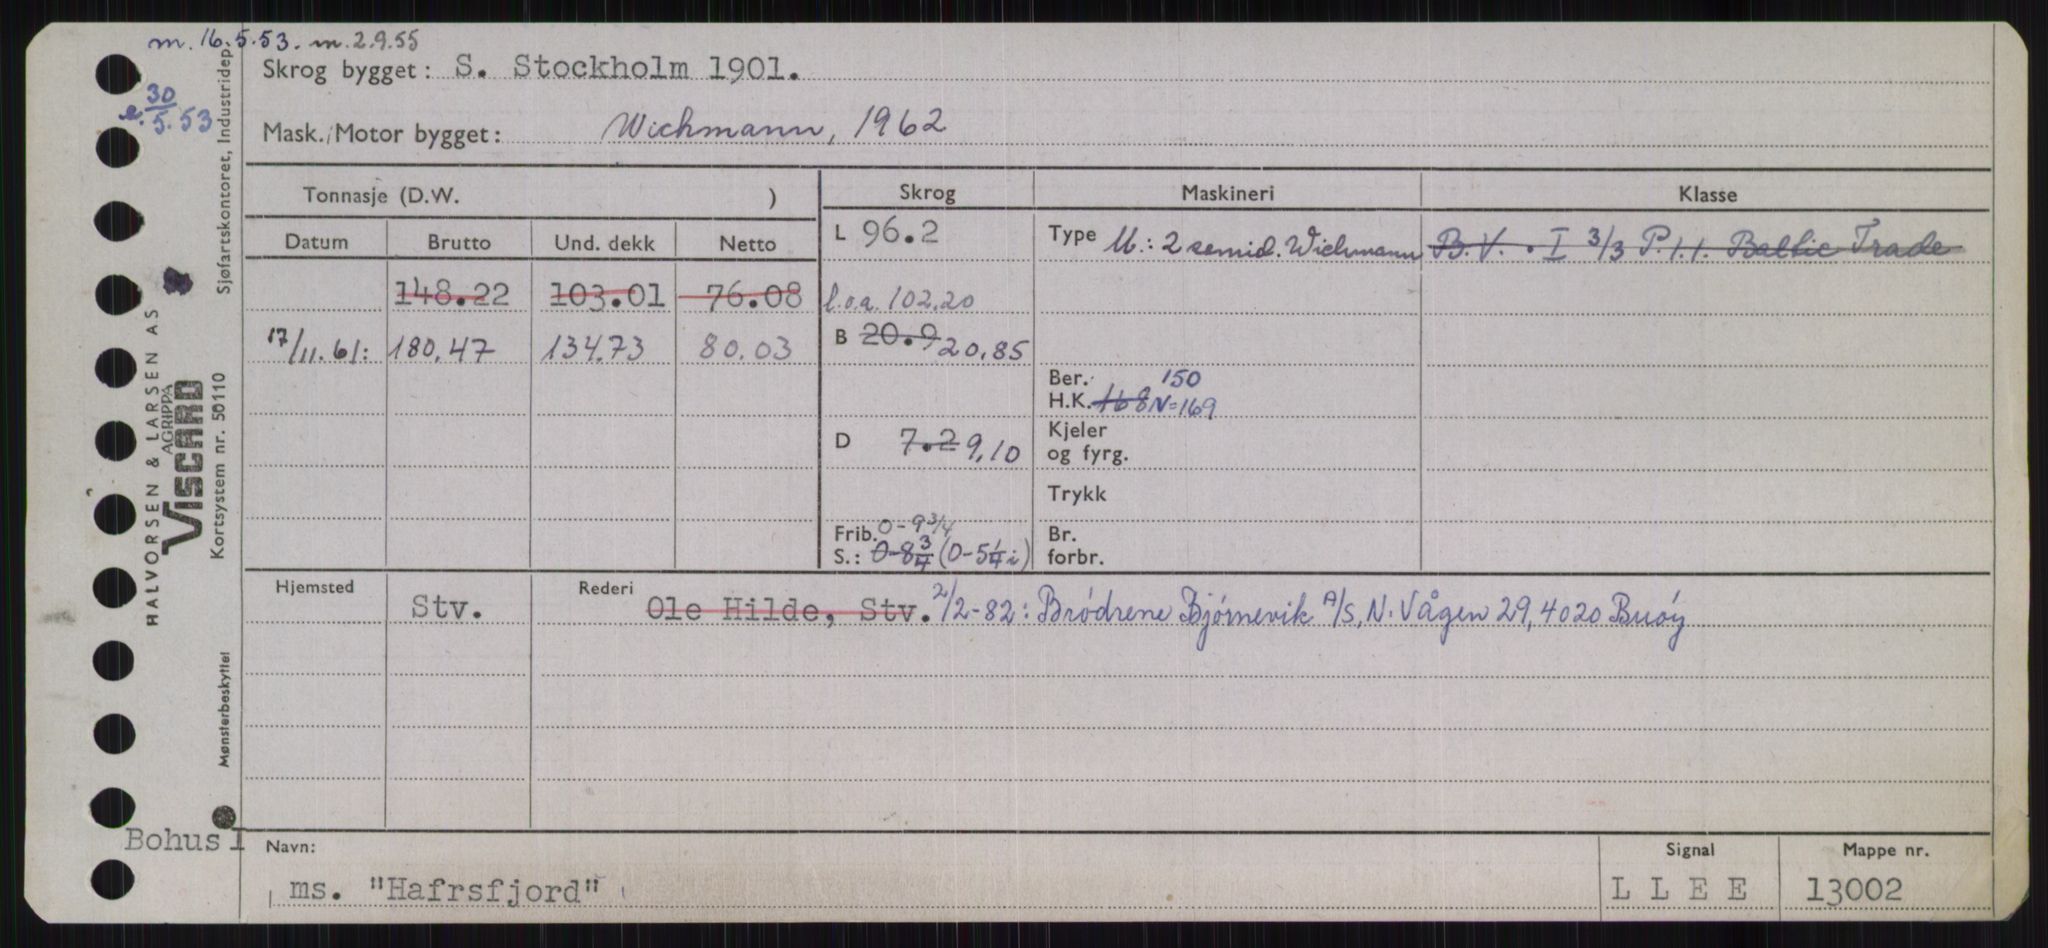 m. 16.5.53. m. 2.9.55
Skrog bygget: S. Stockholm 1901.
e. 30/5.53
Mask./Motor bygget: Wichmann, 1962
Tonnasje (D.W. )
Skrog
Maskineri
Klasse
Datum Brutto Und. dekk Netto
L 96.2
Type M.: 2 semid. Wichmann
B.V. . I 3/3 P.1.1. Baltic Trade
148.22 103.01 76.08
l.o.a. 102.20
17/11.61: 180.47 134.73 80.03
B 20.9 20,85
Ber. 150
H.K. 168 N=169
D 7.2 9,10
Kjeler
og fyrg.
Trykk
Frib. 0-9 3/4
S.: 0-8 3/4 (0-5 1/4 i)
Br.
forbr.
Hjemsted Stv. Rederi Ole Hilde, Stv. 2/2-82: Brødrene Bjørnevik A/S, N. Vågen 29, 4020 Buøy
Bohus 1
Navn:
ms. "Hafrsfjord"
Signal
L L E E
Mappe nr.
13002
HALVORSEN & LARSEN AS
AGRIPPA
VISCARD
Kortsystem nr. 50110
Sjøfartskontoret, Industridep.
Mønsterbeskyttet